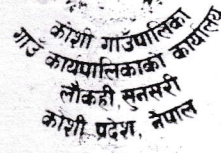 कोशी गाउँपालिका
गाउँ कार्यपालिकाको कार्यालय
लौकही, सुनसरी
कोशी प्रदेश, नेपाल